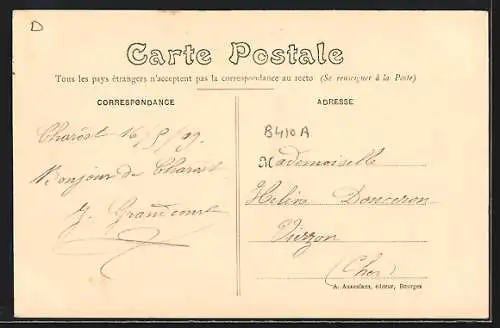 D
Carte Postale
Tous les pays étrangers n'acceptent pas la correspondance au recto (Se renseigner à la Poste)
CORRESPONDANCE
ADRESSE
B410A
Charost 16/5/09
Bonjour de Charost
Grandcourt
Mademoiselle
Héline Donceron
Vierzon
(Cher)
A. Auxenfans, éditeur, Bourges